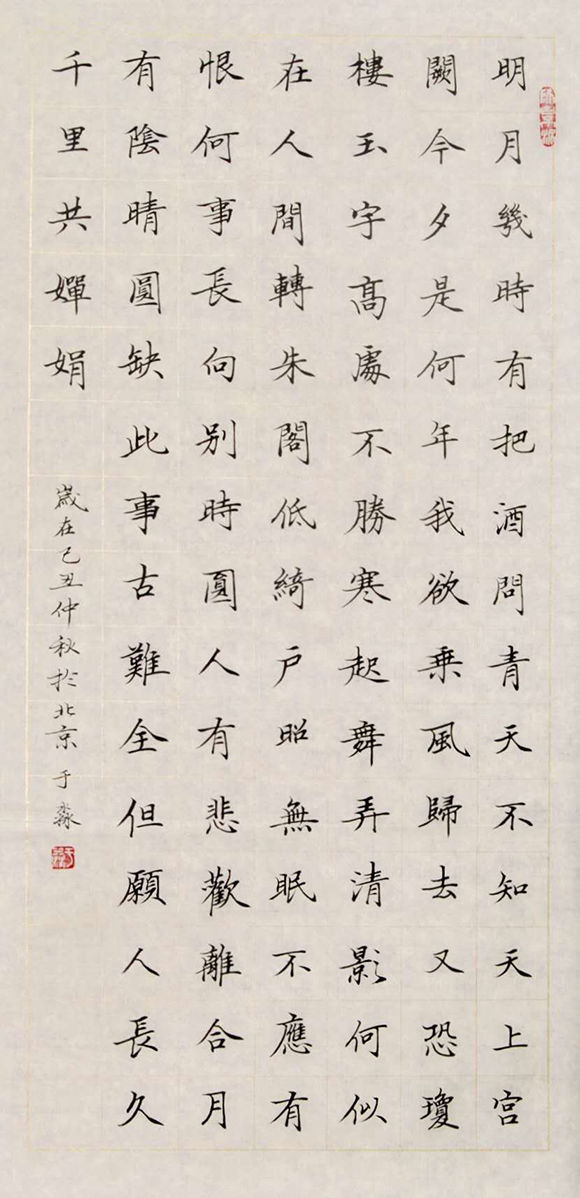 明月幾時有把酒問青天不知天上宮
闕今夕是何年我欲乗風歸去又恐瓊
樓玉宇髙處不勝寒起舞弄清影何似
在人間轉朱閣低綺戶照無眠不應有
恨何事長向别時圓人有悲歡離合月
有陰晴圓缺此事古難全但願人長久
千里共嬋娟
歲在己丑仲秋於北京于淼